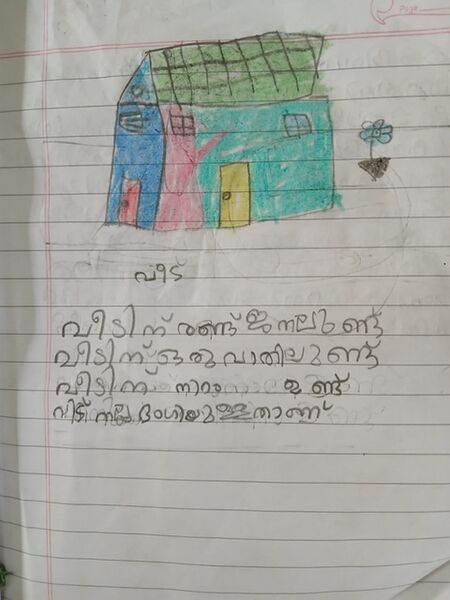 Page
വീട്
വീടിന് രണ്ട് ജനലുണ്ട്
വീടിന് ഒരു വാതിലുണ്ട്
വീടിന നിറം ഉണ്ട്
വീട് നല്ല ഭംഗിയുള്ളതാണ്